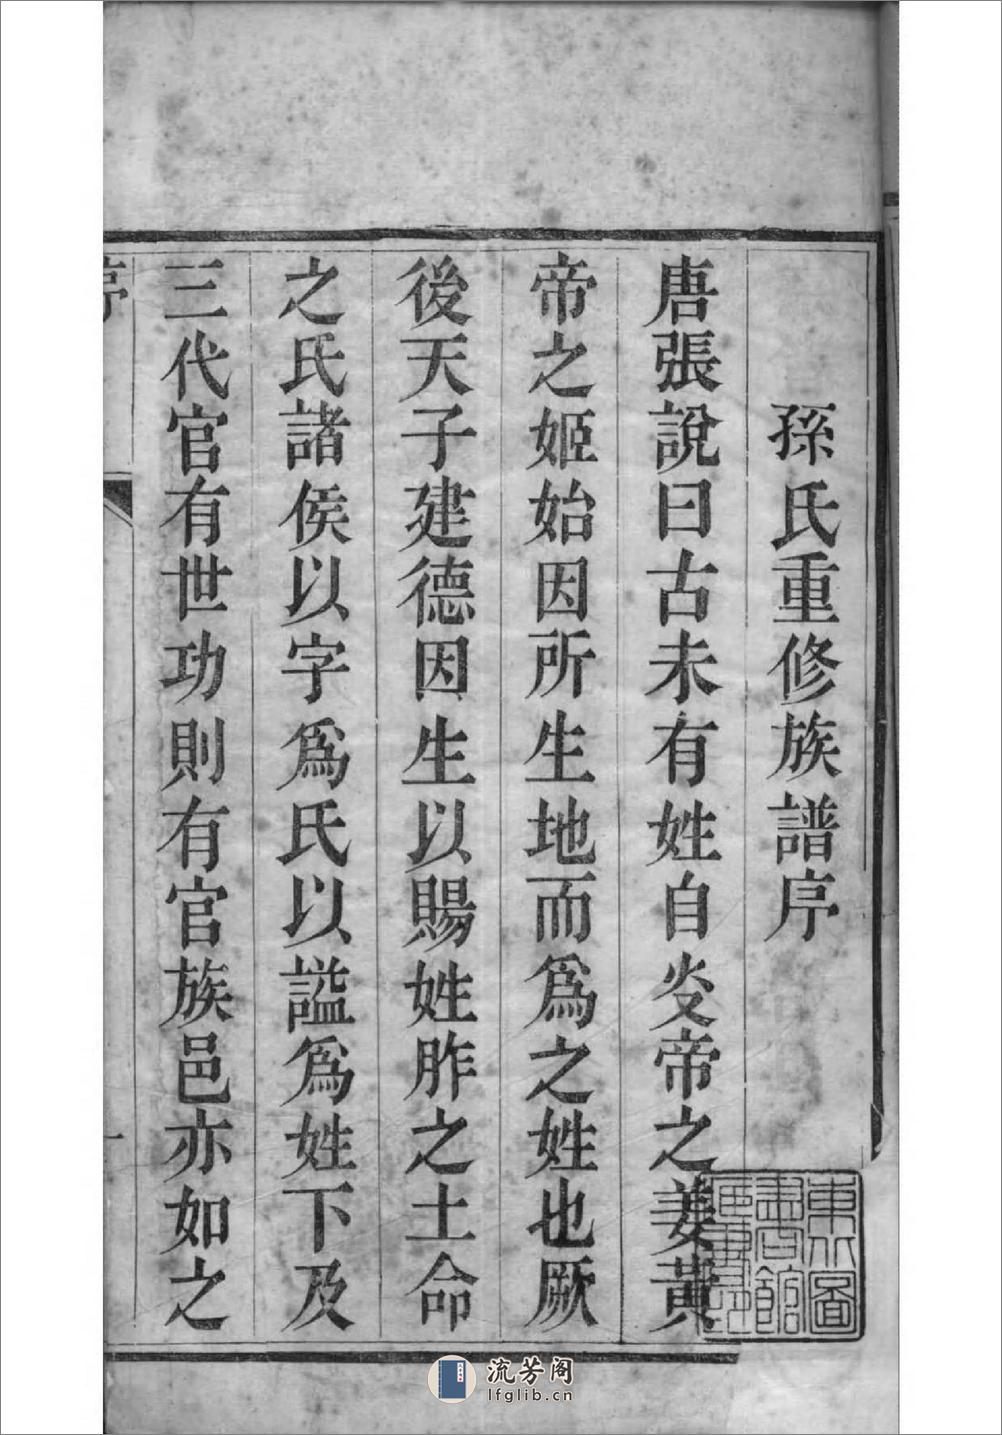 孫氏重修族譜序
唐張說曰古未有姓自炎帝之姜黃
帝之姬始因所生地而爲之姓也厥
後天子建德因生以賜姓胙之土命
之氏諸侯以字爲氏以謚爲姓下及
三代官有世功則有官族邑亦如之
序
一
流芳阁
lfglib.cn